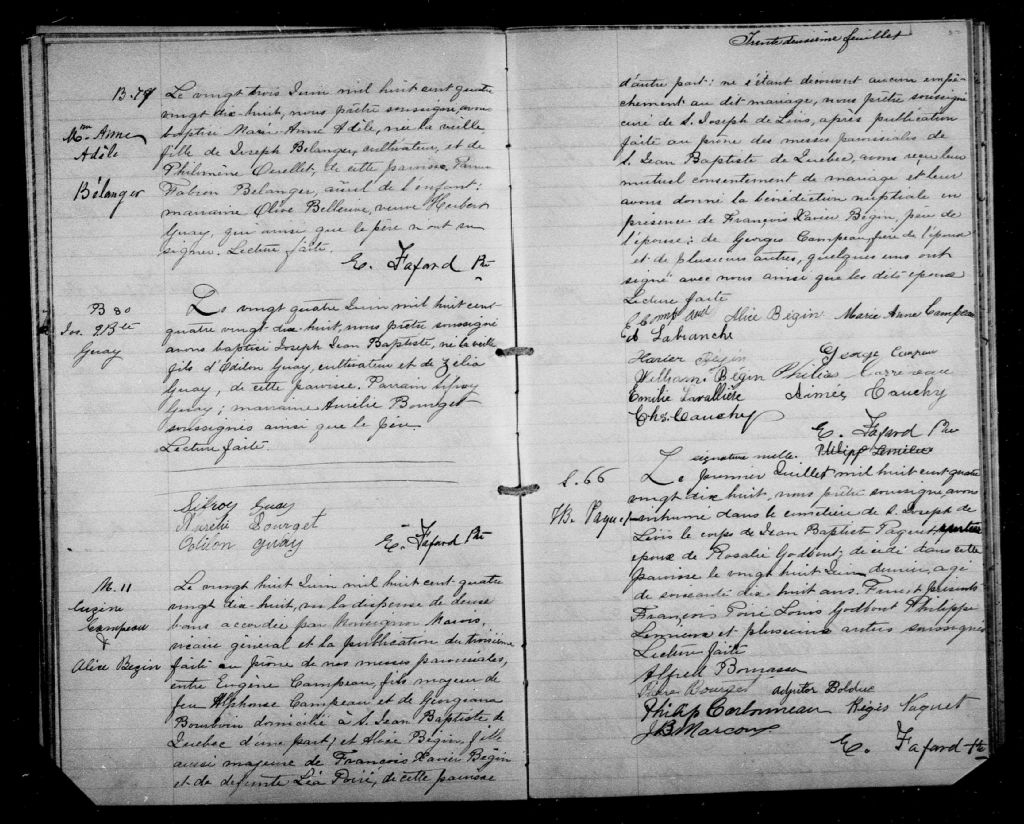 B. 79
Mie Anne
Adèle
Bélanger
Le vingt trois Juin mil huit cent quatre
vingt dix-huit, nous prêtre soussigné avons
baptisé Marie Anne Adèle, née la vieille,
fille de Joseph Belanger, cultivateur, et de
Philomène Ouellet, de cette paroisse Parrain
Fabien Belanger, aïeul de l'enfant;
marraine Olive Bellerive, veuve Herbert
Guay, qui ainsi que le père n'ont su
signer. Lecture faite.
E. Fafard Ptre
B 80
Jos. J. Bte
Guay
Le vingt quatre Juin mil huit cent
quatre vingt dix-huit, nous prêtre soussigné
avons baptisé Joseph Jean Baptiste, né la veille
fils d'Odilon Guay, cultivateur et de Zélia
Guay, de cette paroisse. Parrain
Guay; marraine Aurélie Bourget
soussignés ainsi que le père.
Lecture faite.
Guay
Aurélie Bourget
Odilon Guay
E. Fafard Ptre
M. 11
Eugène
Campeau
&
Alice Begin
Le vingt huit Juin mil huit cent quatre
vingt dix-huit, vu la dispense de deux
bans accordée par Monseignor Marois,
vicaire général et la publication du troisième
faite au prône de nos messes paroissiales,
entre Eugène Campeau, fils majeur de
feu Alphonse Campeau et de Georgiana
domicilié à S. Jean Baptiste de
Quebec d'une part; et Alice Bégin, fille
aussi majeure de François Xavier Bégin
et de defunte Léa Poiré, de cette paroisse
Trente deuxième feuillet
d'autre part; ne s'étant decouvert aucun empê-
chement au dit mariage, nous prêtre soussigné
curé de S. Joseph de Lévis, après publication
faite au prône des messes paroissiales de
S. Jean Baptiste de Quebec, avons reçu leur
mutuel consentement de mariage et leur
avons donné la bénédiction nuptiale en
présence de François Xavier Bégin, père de
l'épouse; de Georges Campeau, frère de l'époux
et de plusieurs autres, quelques uns ont
signé avec nous ainsi que les dits epoux
Lecture faite
Alice Bégin Marie Anne Campeau
Labranche
Xavier Bégin George Campeau
William Bégin Philias
Emilie Lavallière Aimée Cauchy
Chs. Cauchy
E. Fafard Ptre
signature nulle. Philipp Lemieux
S. 66
J.B. Paquet
Le premier Juillet mil huit cent quatre
vingt dix huit, nous prêtre soussigné avons
inhumé dans le cimetière de S. Joseph de
Lévis le corps de Jean Baptiste Paquet
epoux de Rosalie Godbout, décédé dans cette
paroisse le vingt huit Juin dernier, agé
de soixante dix huit ans. Furent présents
François Poiré Louis Godbout Philippe
Lemieux et plusieurs autres soussignés
Lecture faite
Alfred Bonnassa
Bourget Adjutor Bolduc
Philip Carbonneau Régis Paquet
J.B. Marcoux
E. Fafard Ptre